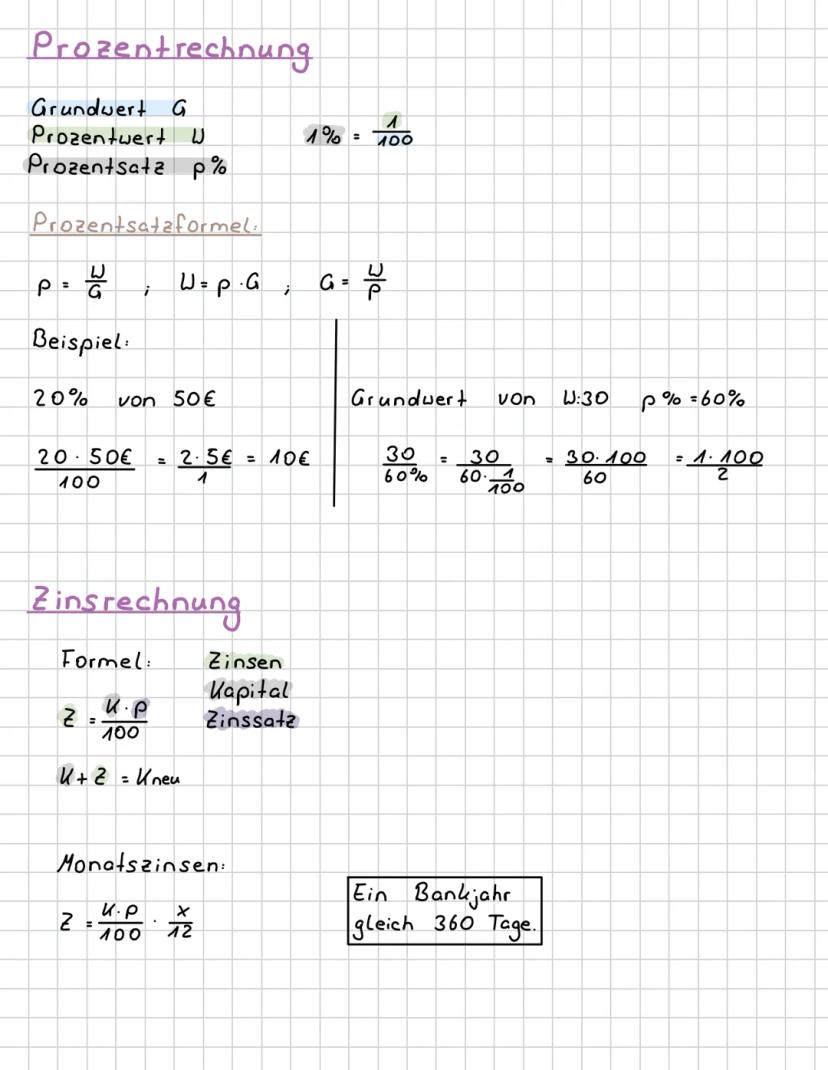 Prozentrechnung
Grundwert G
Prozentwert W
Prozentsatz p%
1% = 1/100
Prozentsatzformel:
p = W/G ; W = p · G ; G = W/p
Beispiel:
20% von 50€
20 · 50€/100 = 2 · 5€/1 = 10€
Grundwert von W:30 p% = 60%
30/60% = 30/60 · 1/100 = 30 · 100/60 = 1 · 100/2
Zinsrechnung
Formel:
Zinsen
Kapital
Zinssatz
Z = K · p/100
K + Z = K neu
Monatszinsen:
Z = K · p/100 · x/12
Ein Bankjahr
gleich 360 Tage.